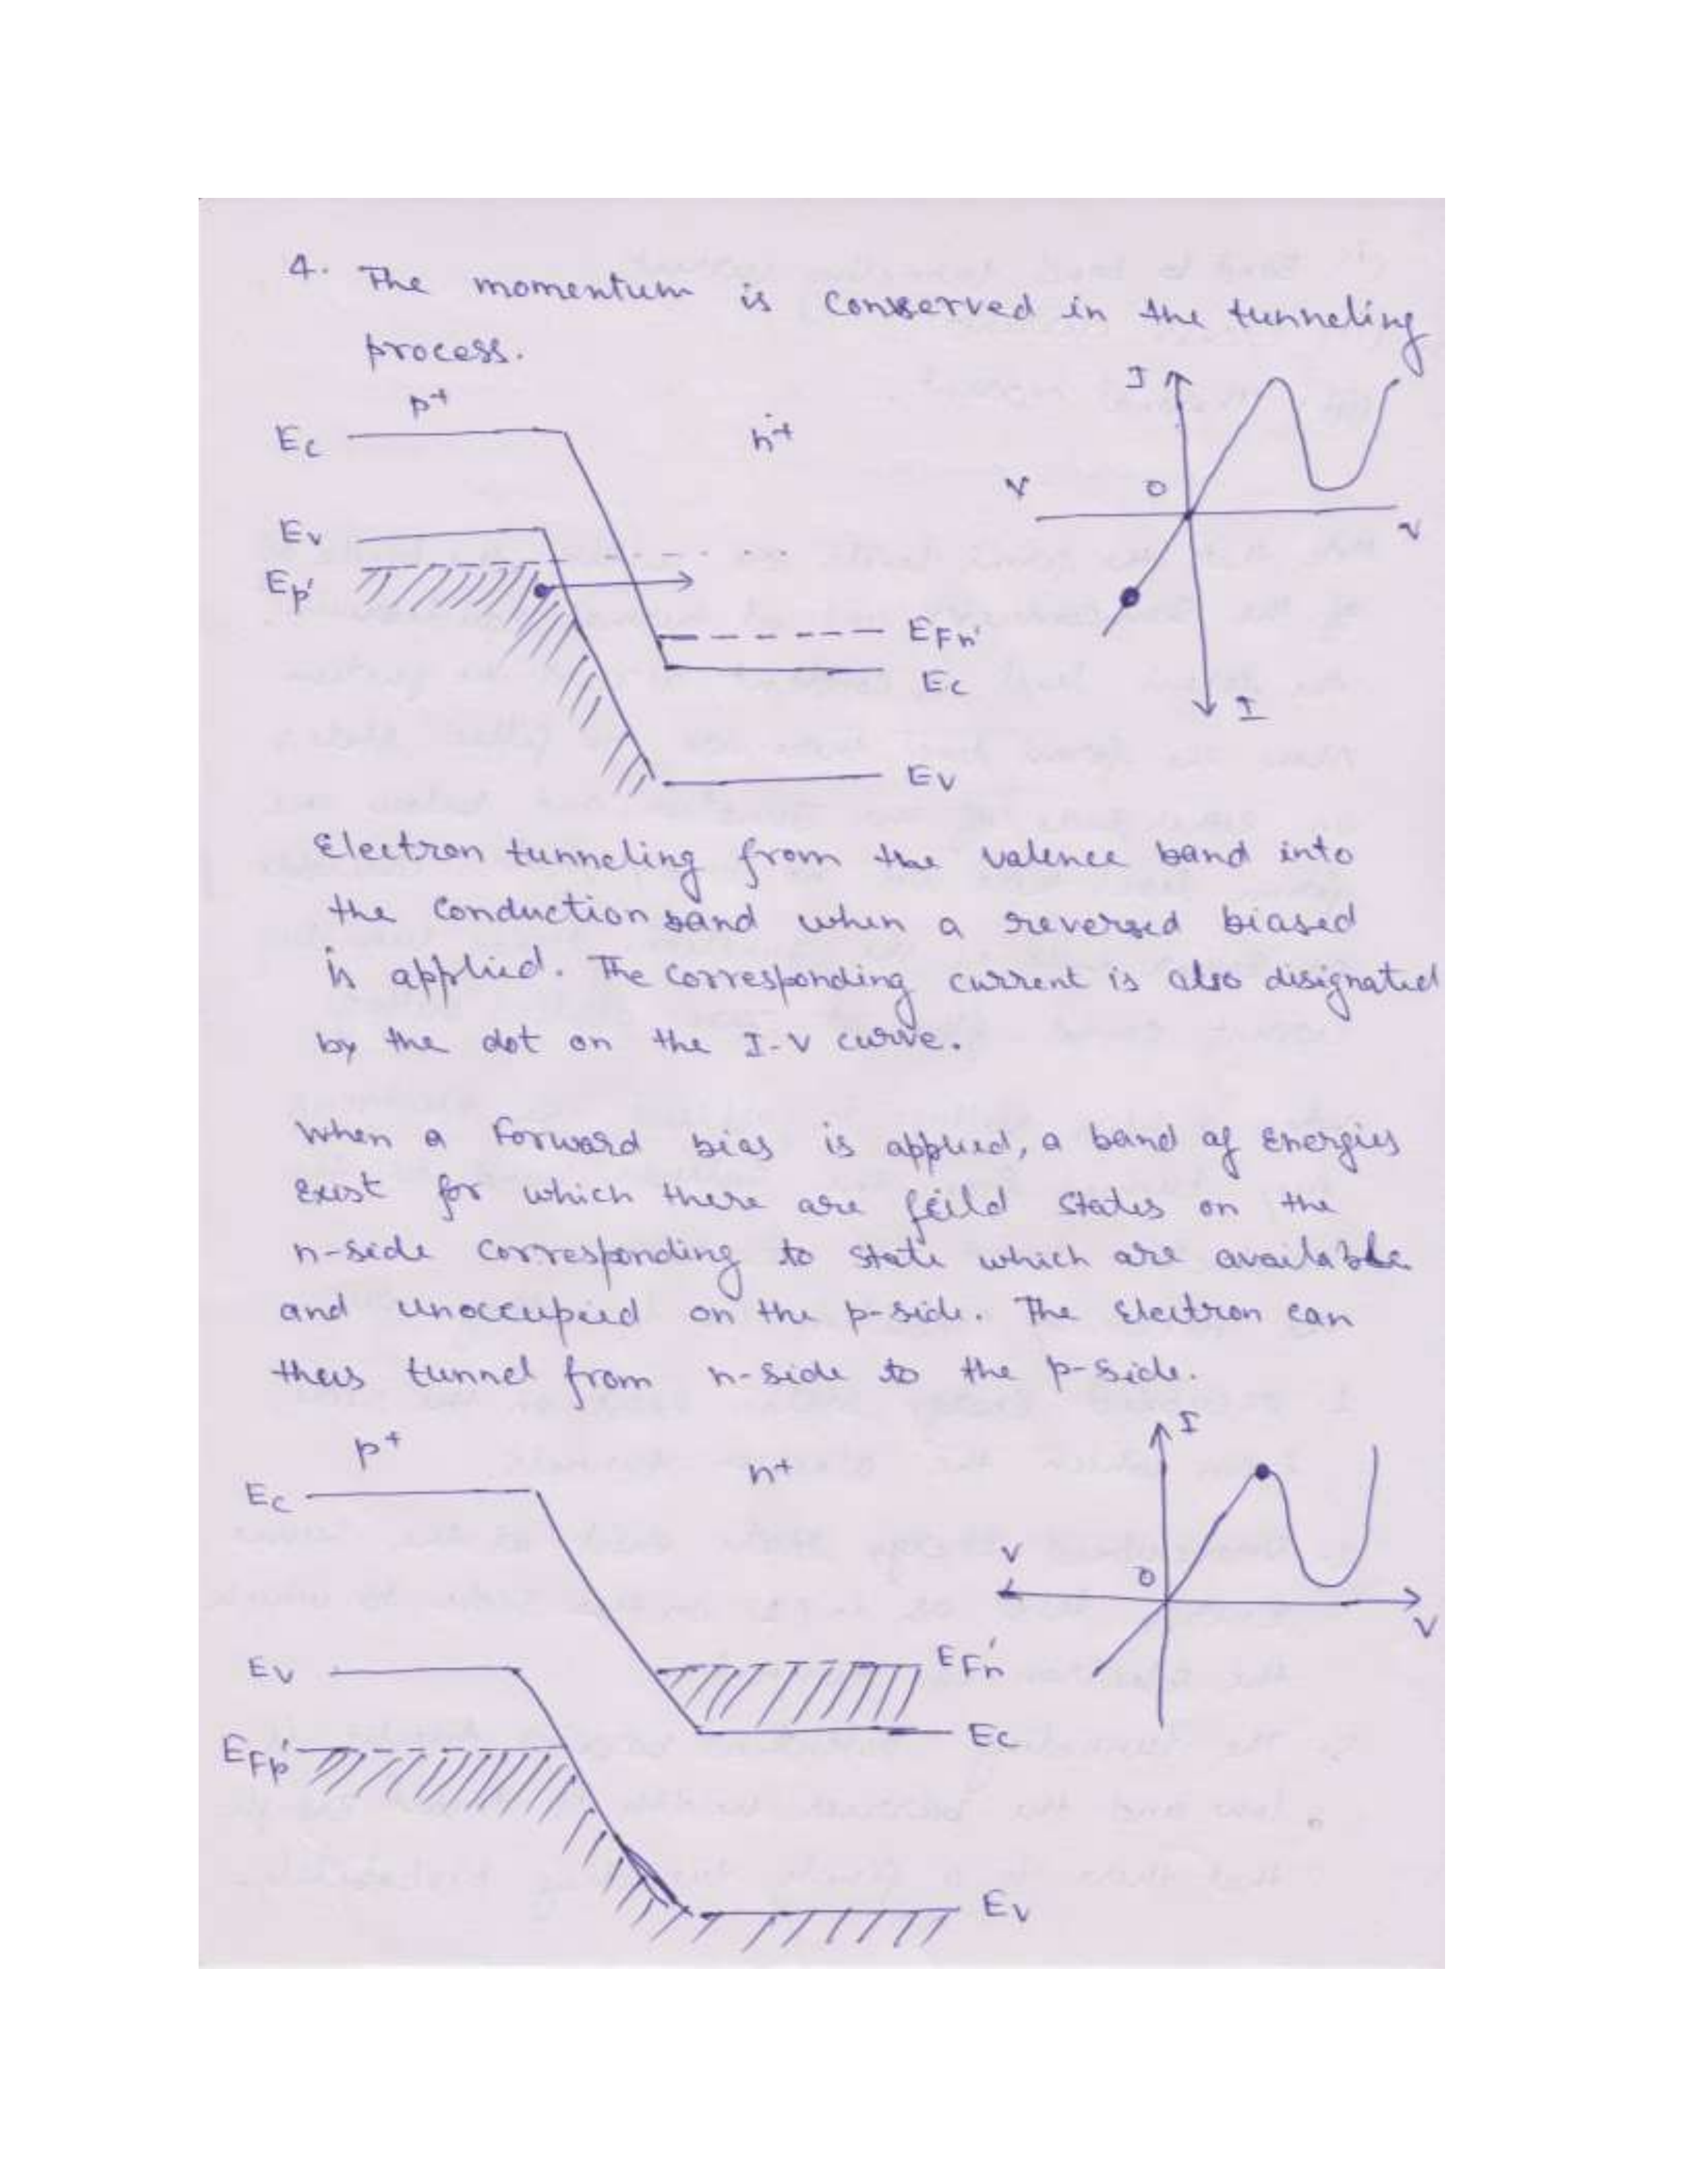 4. The momentum is conserved in the tunneling
process.
p+
n+
Ec
Ev
Ep'
EFn'
Ec
Ev
I
V
O
V
I
Electron tunneling from the valence band into
the conduction band when a reversed biased
is applied. The corresponding current is also disignated
by the dot on the I-V curve.
When a forward bias is applied, a band of Energies
Exist for which there are feild states on the
n-side corresponding to state which are available
and unoccupied on the p-side. The Electron can
thus tunnel from n-side to the p-side.
p+
n+
Ec
Ev
EFp'
EFn'
Ec
Ev
I
V
O
V